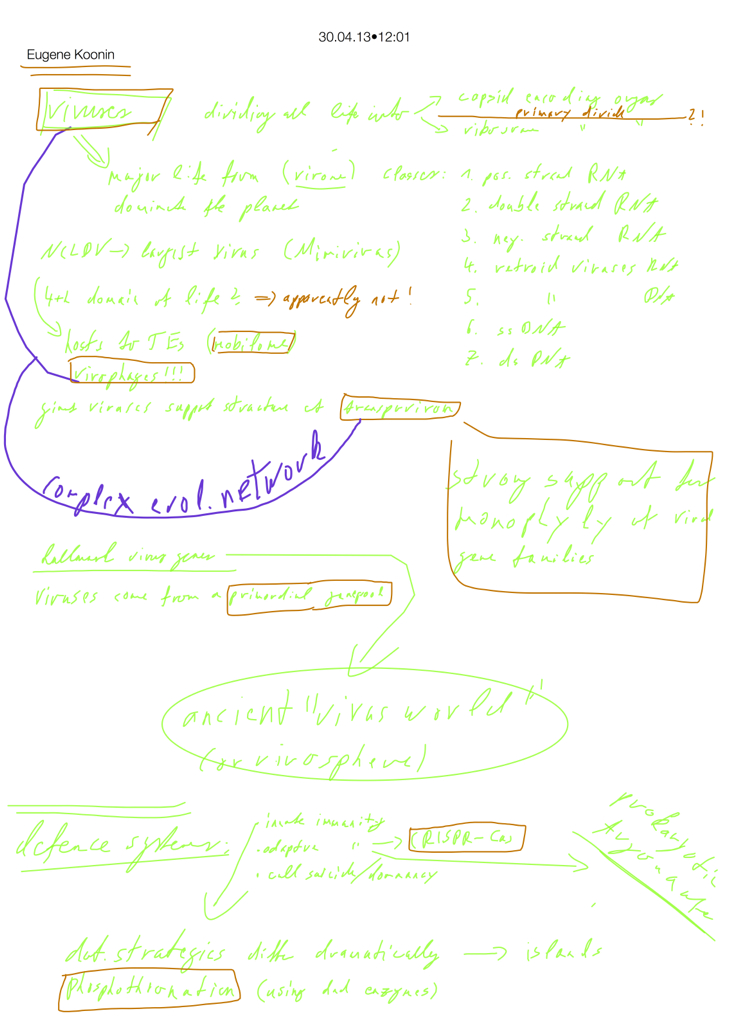 30.04.13•12:01
Eugene Koonin
viruses dividing all life into → capsid encoding orgas
primary divide ?!
→ ribosome " "
major life form (virome)
dominate the planet
classes: 1. pos. strand RNA
2. double strand RNA
3. neg. strand RNA
4. retroid viruses RNA
5. " DNA
6. ss DNA
7. ds DNA
NCLDV → largest virus (Mimivirus)
4th domain of life? ⇒ apparently not!
hosts to TEs (mobilome)
virophages!!!
giant viruses support structure of transpoviron
complex evol. network
strong support for
monophyly of viral
gene families
hallmark virus genes
viruses come from a primordial genepool
ancient "virus world"
(or virosphere)
defence systems:
· innate immunity
· adaptive " → CRISPR-Cas
· cell suicide/dormancy
prokaryotic
Argonaute
def. strategies differ dramatically → islands
(using dnd enzymes)